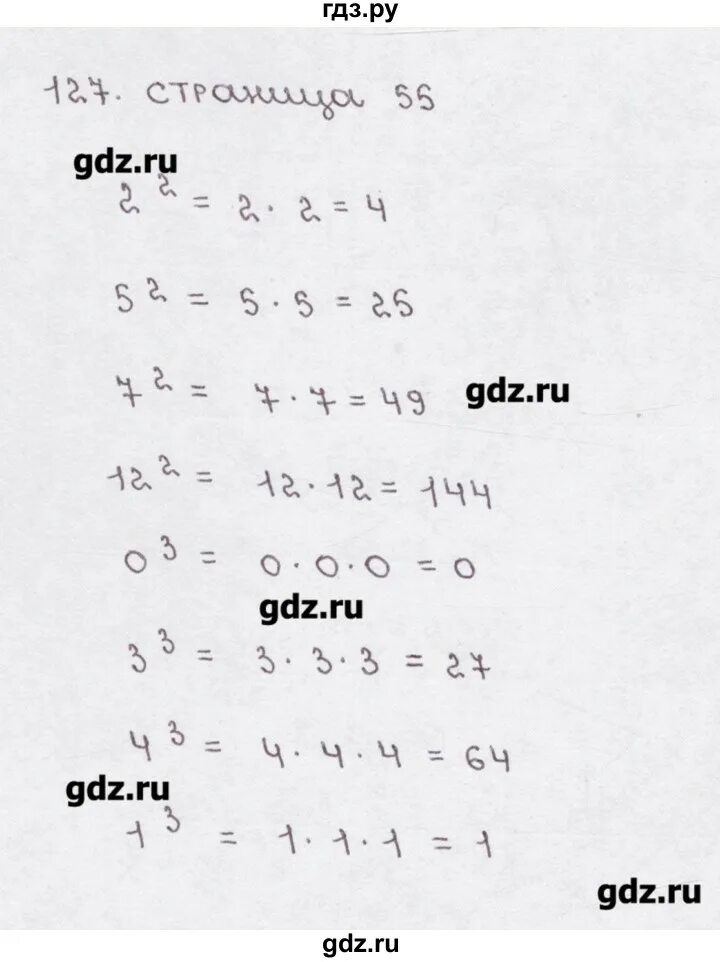 гдз.ру
127. страница 55
gdz.ru
2² = 2 · 2 = 4
5² = 5 · 5 = 25
7² = 7 · 7 = 49 gdz.ru
12² = 12 · 12 = 144
0³ = 0 · 0 · 0 = 0
gdz.ru
3³ = 3 · 3 · 3 = 27
4³ = 4 · 4 · 4 = 64
gdz.ru
1³ = 1 · 1 · 1 = 1
gdz.ru
gdz.ru